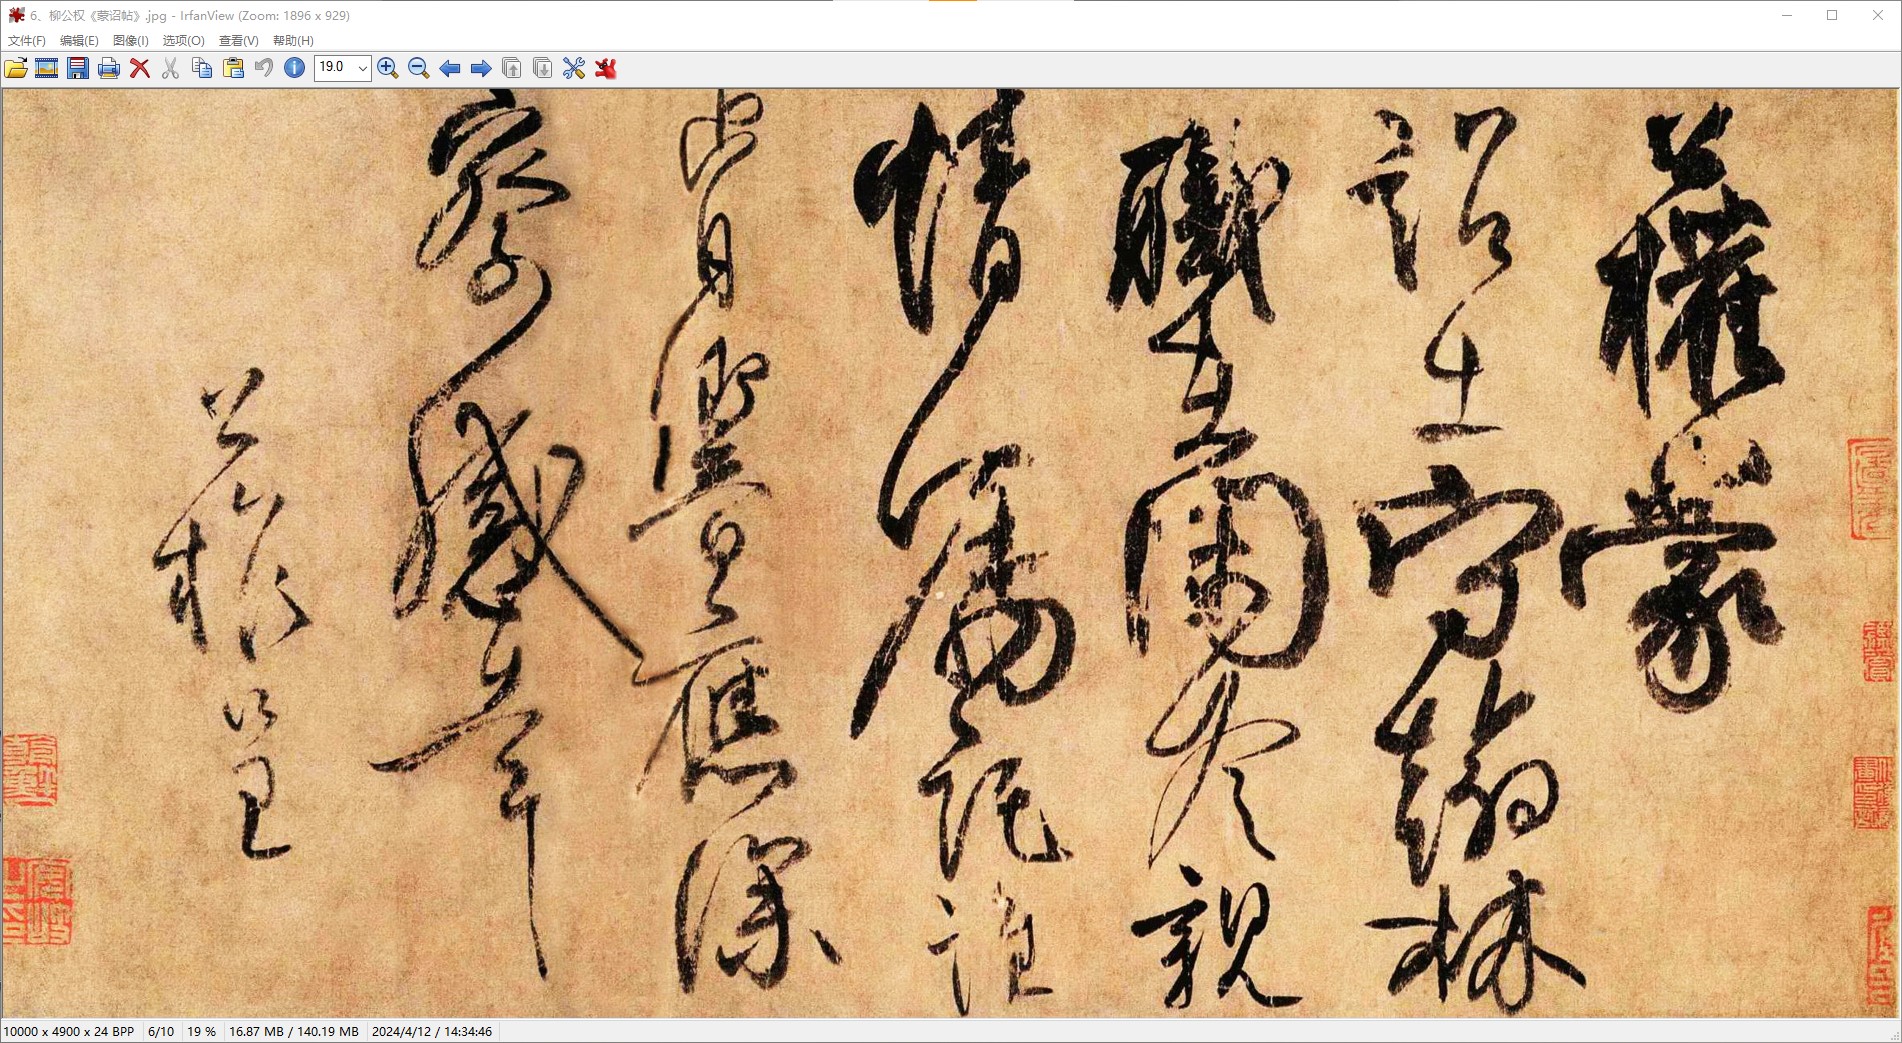 6、柳公权《蒙诏帖》.jpg - IrfanView (Zoom: 1896 x 929)
文件(F) 编辑(E) 图像(I) 选项(O) 查看(V) 帮助(H)
19.0
公權蒙
詔出守翰林
職在閑冷親
情屬託誰
肯響應深
察感幸
公權呈
10000 x 4900 x 24 BPP 6/10 19 % 16.87 MB / 140.19 MB 2024/4/12 / 14:34:46